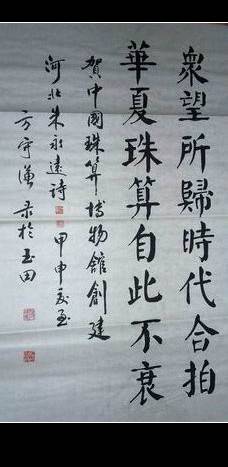 眾望所歸時代合拍
華夏珠算自此不衰
賀中國珠算博物館創建
河北朱永遠詩 甲申夏至
方守漢 录於玉田